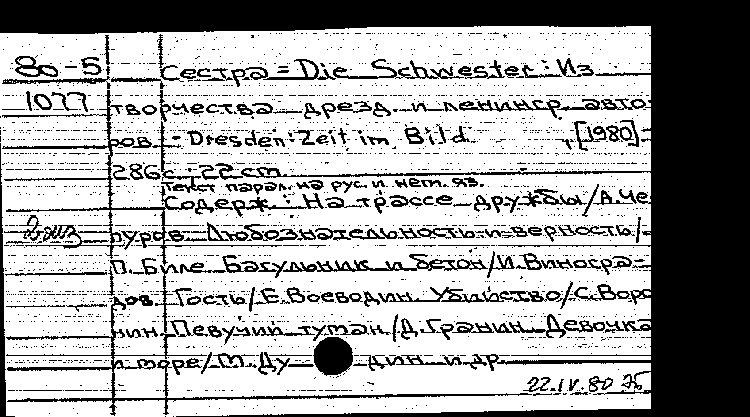 80-5
1077
Сестра = Die Schwester : Из
творчества дрезд. и ленингр. авто-
ров. - Dresden : Zeit im Bild, [1980]-
286с. ; 22 cm.
Текст парал. на рус. и нем. яз.
Содерж.: На трассе дружбы/А.Че-
пуров. Любознательность и верность/
П. Биле. Багульник и бетон/И.Виногра-
дов. Гость/Е.Воеводин. Убийство/С.Воро
нин. Певучий туман/Д.Гранин. Девочка
и море/М.Ду дин и др.
22.IV.80